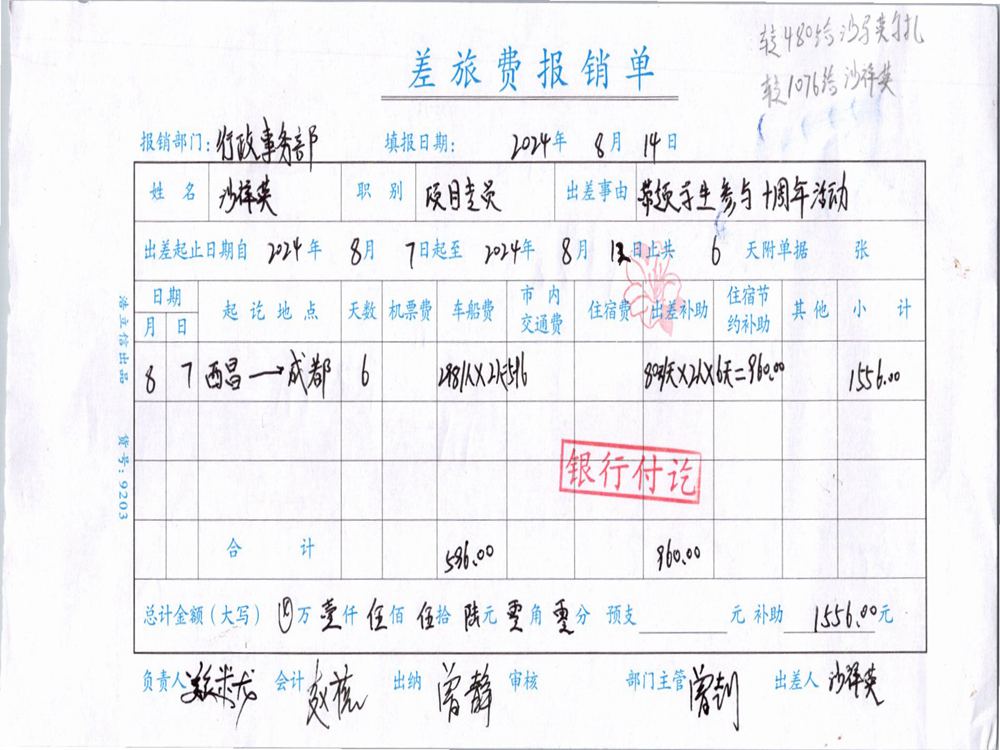 转480给沙马英尔扎
转1076给沙祥英
差旅费报销单
报销部门：行政事务部 填报日期： 2024年 8月 14日
姓名 沙祥英 职别 项目专员 出差事由 带领学生参与十周年活动
出差起止日期自 2024年 8月 7日起至 2024年 8月 12日止共 6 天附单据 张
日期 起讫地点 天数 机票费 车船费 市内交通费 住宿费 出差补助 住宿节约补助 其他 小计
月 日
8 7 西昌→成都 6 298/人×2人=596 80/天×2人×6天=960.00 1556.00
银行付讫
合计 596.00 960.00
总计金额（大写） 万壹仟伍佰伍拾陆元零角零分 预支 元 补助 1556.00元
负责人 会计 出纳 曾静 审核 部门主管 曾钊 出差人 沙祥英
货号：9203